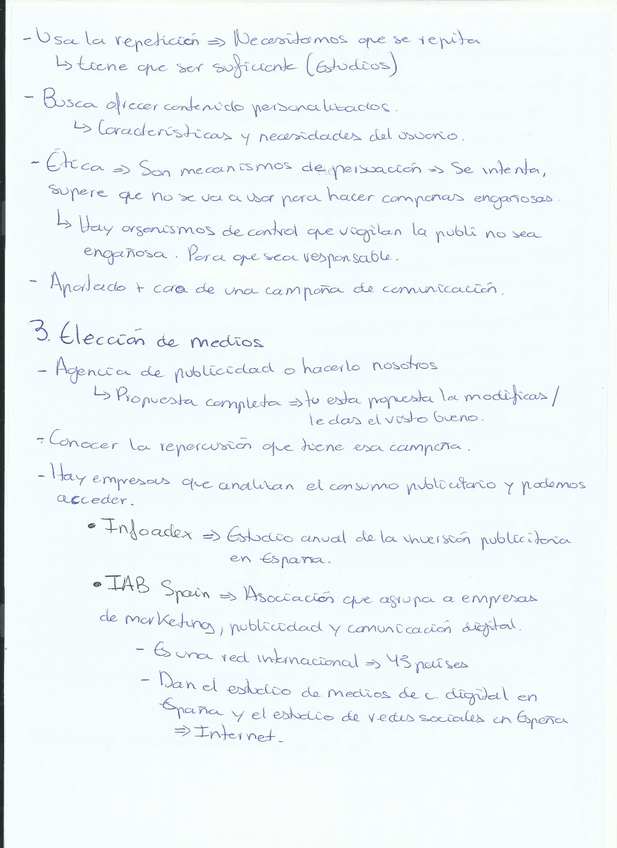 - Usa la repetición => Necesitamos que se repita
↳ tiene que ser suficiente (Estudios)
- Busca ofrecer contenido personalizados.
↳ Características y necesidades del usuario.
- Ética => Son mecanismos de persuación => Se intenta,
supere que no se va a usar para hacer campañas engañosas.
↳ Hay organismos de control que vigilan la publi no sea
engañosa. Para que sea responsable.
- Apartado + caro de una campaña de comunicación.
3. Elección de medios
- Agencia de publicidad o hacerlo nosotros
↳ Propuesta completa => tu esta propuesta la modificas /
le das el visto bueno.
- Conocer la repercusión que tiene esa campaña.
- Hay empresas que analizan el consumo publicitario y podemos
acceder.
• Infoadex => Estudio anual de la inversión publicitaria
en España.
• IAB Spain => Asociación que agrupa a empresas
de marketing, publicidad y comunicación digital.
- Es una red internacional => 45 países
- Dan el estudio de medios de c. digital en
España y el estudio de redes sociales en España
=> Internet.